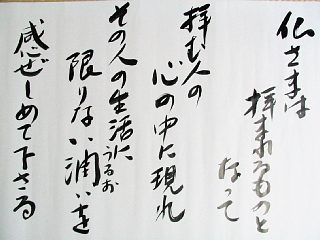 仏さまは
拝まれるものと
なって
拝む人の
心の中に現れ
その人の生活に
うるお
限りない潤いを
感ぜしめて下さる